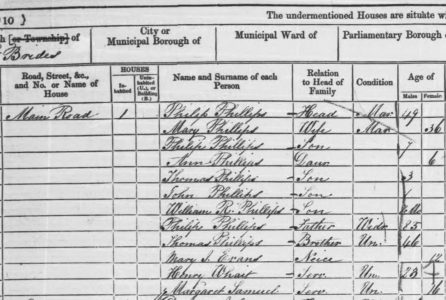 10 } The undermentioned Houses are situate w
h [or Township] of City or Municipal Borough of Municipal Ward of Parliamentary Borough o
Brides
Road, Street, &c., and No. or Name of House HOUSES Inhabited Uninhabited (U.), or Building (B.) Name and Surname of each Person Relation to Head of Family Condition Age of Males Female
Main Road 1 Philip Phillips Head Mar 49
Mary Phillips Wife Mar 36
Philip Phillips Son 7
Ann Phillips Daur 6
Thomas Phillips Son 3
John Phillips Son 1
William R. Phillips Son
Philip Phillips Father Widr 85
Thomas Phillips Brother Un 46
Mary J. Evans Neice 12
Henry Serv Un 23
Margaret Samuel Serv Un